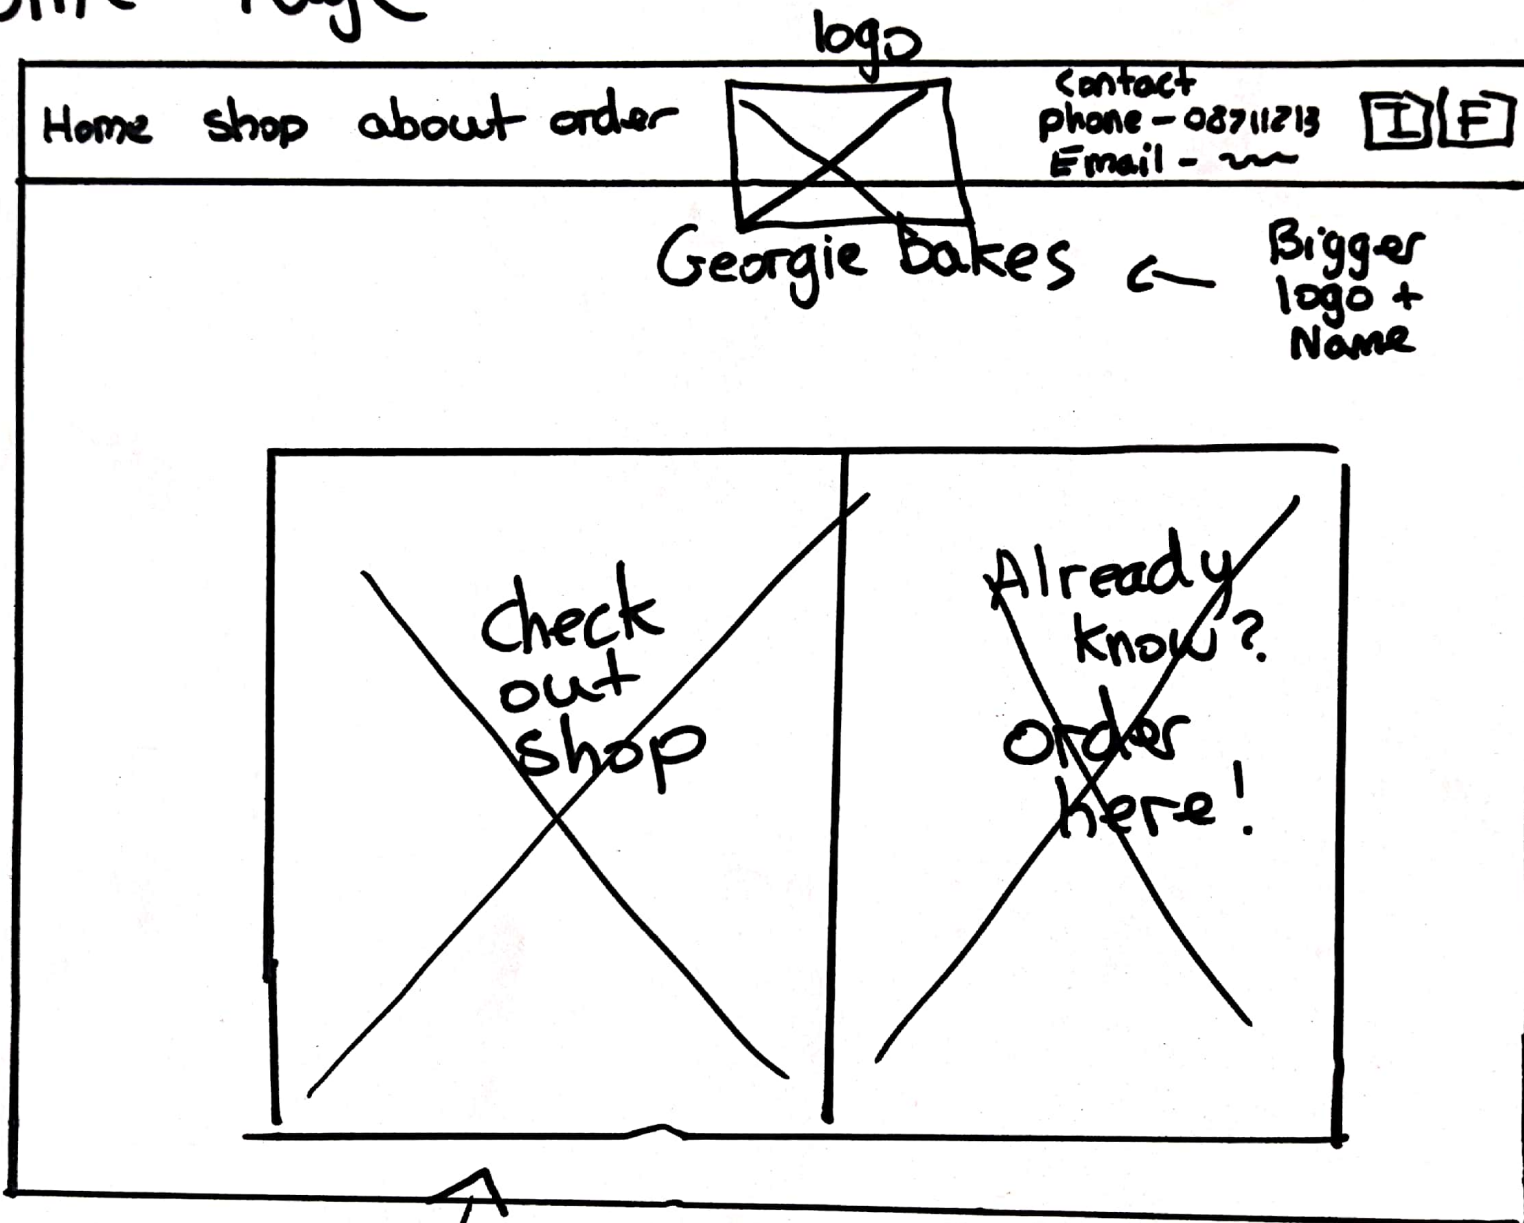 Page
logo
Home shop about order
Contact
phone - 08711213
Email -
I F
Georgie Bakes
Bigger
logo +
Name
Check
out
shop
Already
know?
order
here!